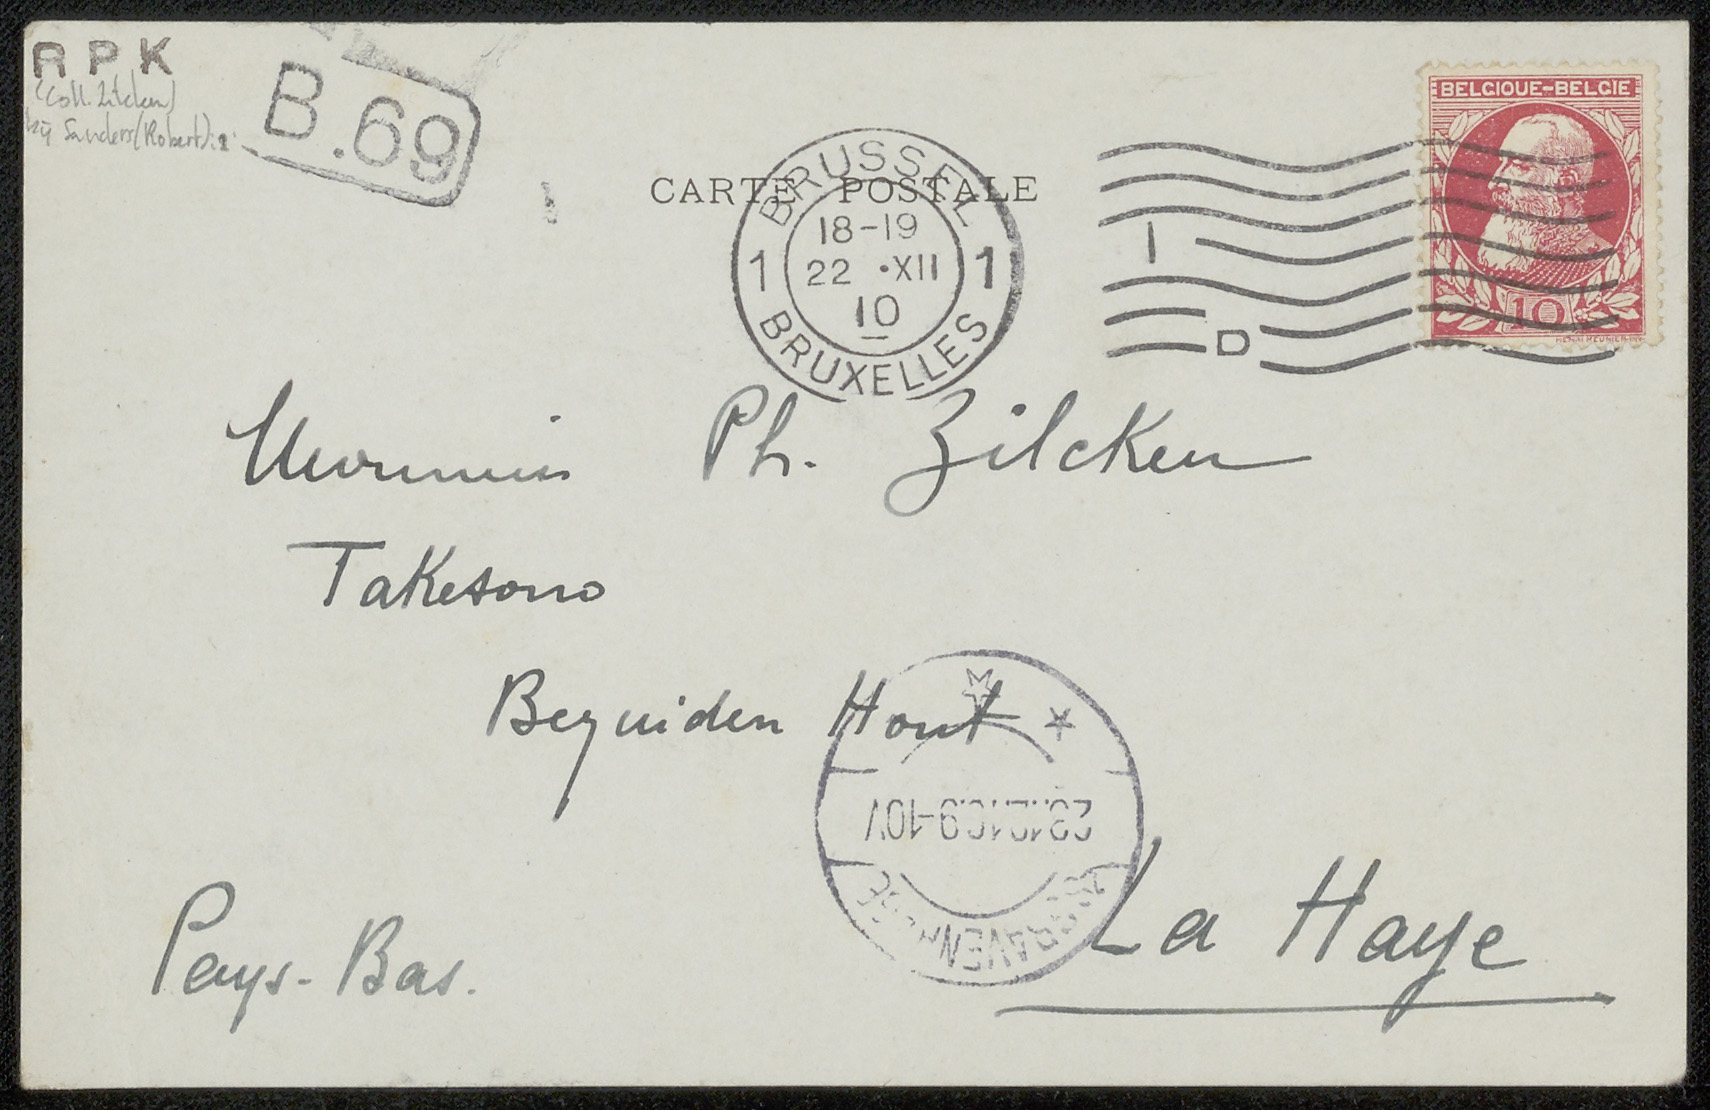 RPK
(Coll. Zilcken)
bij Sanders (Robert): 2
B.69
CARTE POSTALE
BRUSSEL
18-19
1 22 •XII 1
10
BRUXELLES
I
D
BELGIQUE-BELGIE
10
Ph. Zilcken
Takesono
Bezuiden Hout
23.12.10.9-10V
'S GRAVENHAGE
La Haye
Pays-Bas.